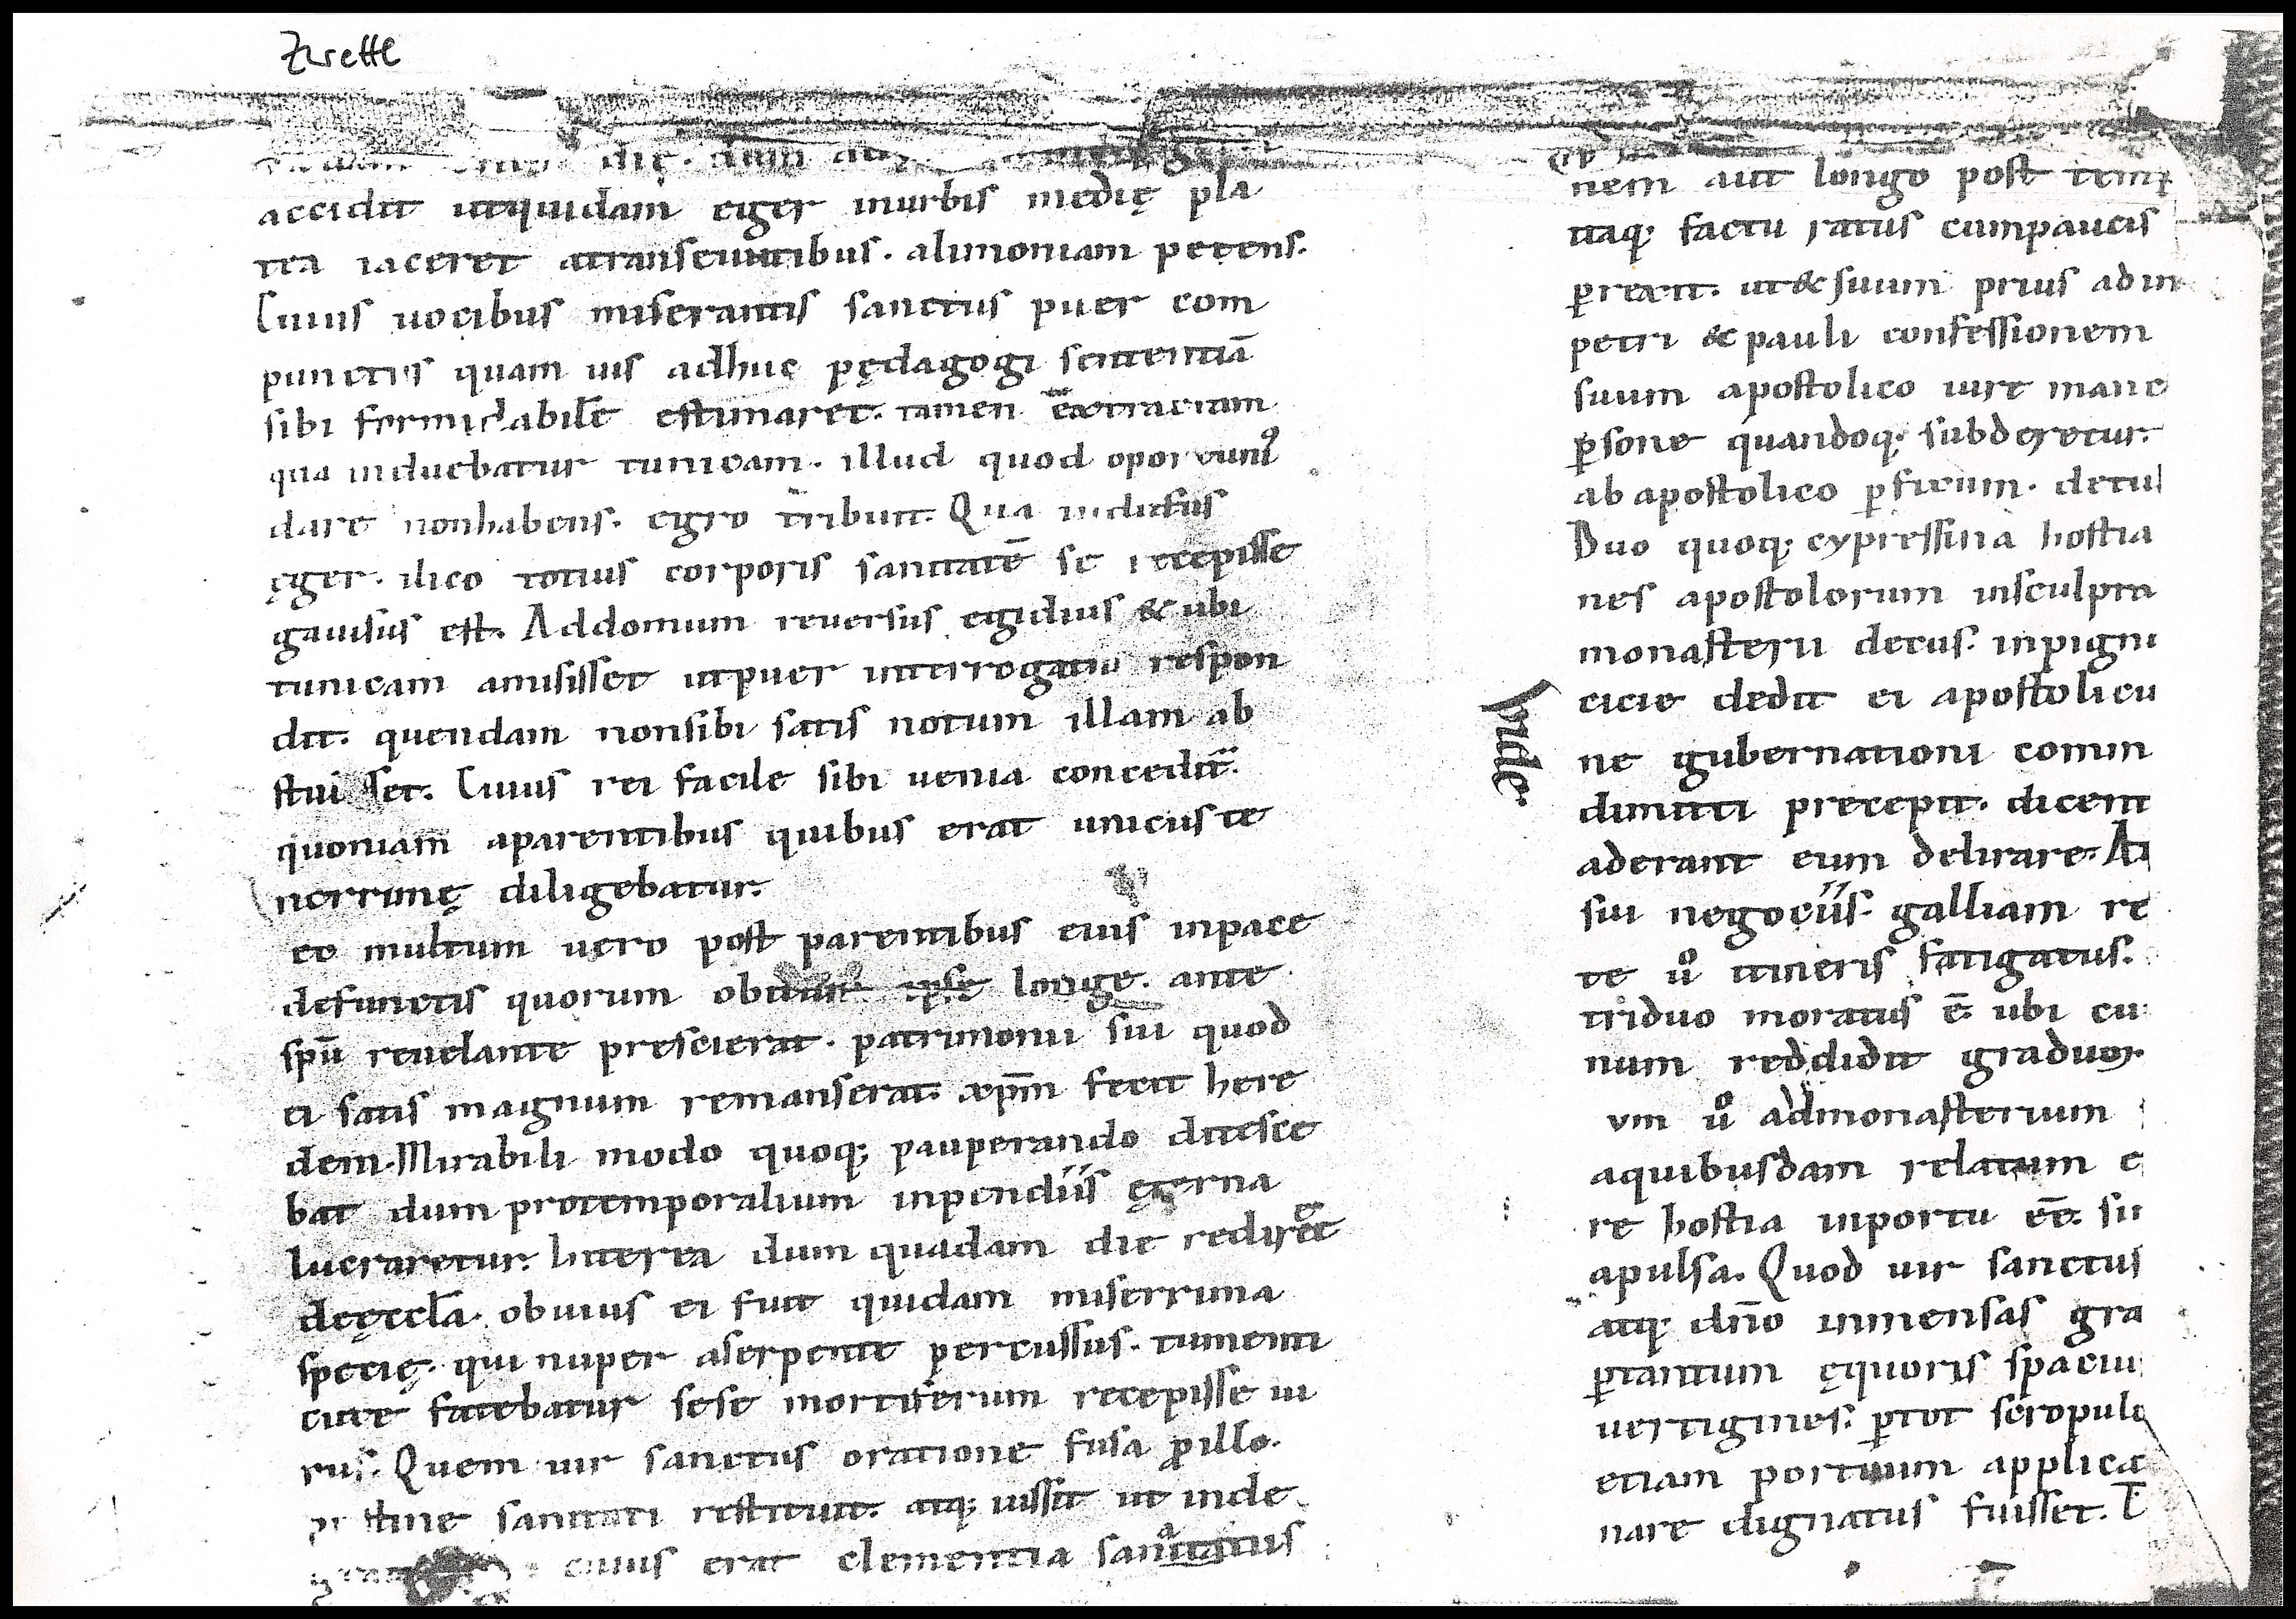 Zwettl
die. dum
accidit utquidam eger inurbis medię pla
tea iaceret atranseuntibus. alimoniam petens.
Cuius uocibus miserantis sanctus puer com
punctus quam uis adhuc pędagogi sententiā
sibi formidabilē estimaret. tamen
qua induebatur tunicam. illud quod oportuniꝰ
dare nonhabens. egro tribuit. Qua indutus
ęger. ilico totius corporis sanitatē se recepisse
gauisus est. Addomum reuersus egidius & ubi
tunicam amisisset utpuer interrogatus respon
dit. quendam nonsibi satis notum illam ab
stulisset. Cuius rei facile sibi uenia conceditᷣ.
quoniam aparentibus quibus erat unicus te
nerrimę diligebatur.
eo multum uero post parentibus eius inpace
defunctis quorum obitum ipse longe. ante
spū reuelante prescierat. patrimonii sui quod
ei satis magnum remanserat. xp̄m fecit here
dem. Mirabili modo quoq; pauperando ditesce
bat dum protemporalium inpendiis ęterna
lucraretur. Interea dum quadam die rediret
deęccl̄a. obuius ei fuit quidam miserrima
specię. qui nuper aserpente percussus. tumenti
cute fatebatur sese mortiferum recepisse ui
rus. Quem uir sanctus oratione fusa ꝓillo.
pristine sanitati restituit. atq; iussit ut inde
cuius erat clementia sanitatus
nem aut longo post temp
itaq; factu ratus cumpaucis
ꝑrexit. ut & suum prius ad in
petri & pauli confessionem
suum apostolico iure manc
ꝑsone quandoq; subderetur.
ab apostolico ꝑficum. detul
Duo quoq; cypressina hostia
nes apostolorum insculpta
monasterii decus. inpign
cicie dedit ei apostolicu
inde.
ne gubernationi comm
dimitti precepit. dicent
aderant eum delirare. At
sui negociis. galliam re
te uͦ itineris fatigatus.
triduo moratus ē. ubi cu
num reddidit graduoꝝ
vm uͦ admonasterium
aquibusdam relatum e
re hostia inportu eē. su
apulsa. Quod uir sanctus
atq; dn̄o inmensas gra
ꝑtantum ęquoris spaciu
uertigines. ꝑtot scropulo
etiam portuum applica
nare dignatus fuisset. T